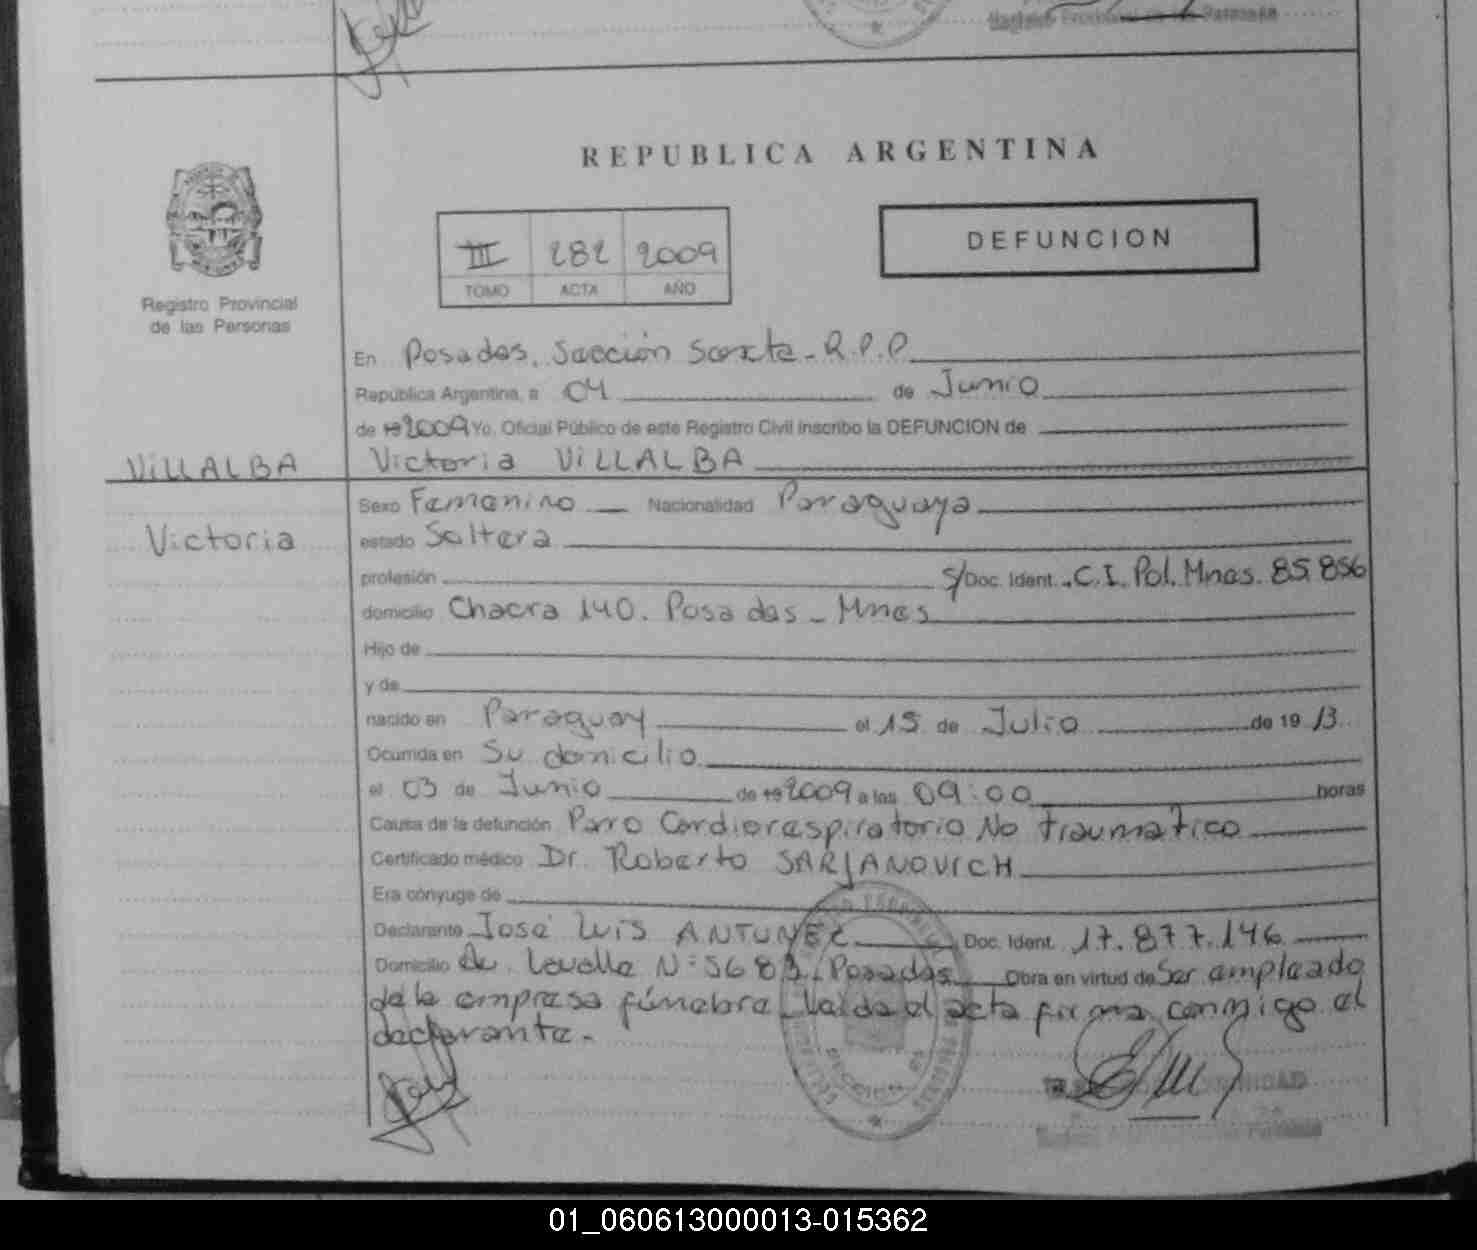 REPUBLICA ARGENTINA
III 282 2009
TOMO ACTA AÑO
DEFUNCION
Registro Provincial
de las Personas
En Posadas. Sección Sexta - R.P.P.
República Argentina, a 04 de Junio
de 19 2009 Yo, Oficial Público de este Registro Civil inscribo la DEFUNCION de
VILLALBA
Victoria VILLALBA
Victoria
Sexo Femenino Nacionalidad Paraguaya
estado Soltera
profesión S/Doc. Ident. C.I. Pol. Mnes. 85.856
domicilio Chacra 140. Posadas - Mnes
Hijo de
y de
nacido en Paraguay el 15 de Julio de 19 13
Ocurrida en Su domicilio
el 03 de Junio de 19 2009 a las 09:00 horas
Causa de la defunción Paro Cardiorespiratorio No traumatico
Certificado médico Dr. Roberto SARJANOVICH
Era cónyuge de
Declarante José Luis ANTUNEZ Doc. Ident. 17.877.146
Domicilio Av. Lavalle N: 5683 - Posadas Obra en virtud de Ser empleado
de la empresa fúnebre - Leída el acta firma conmigo el
declarante. -
01_060613000013-015362